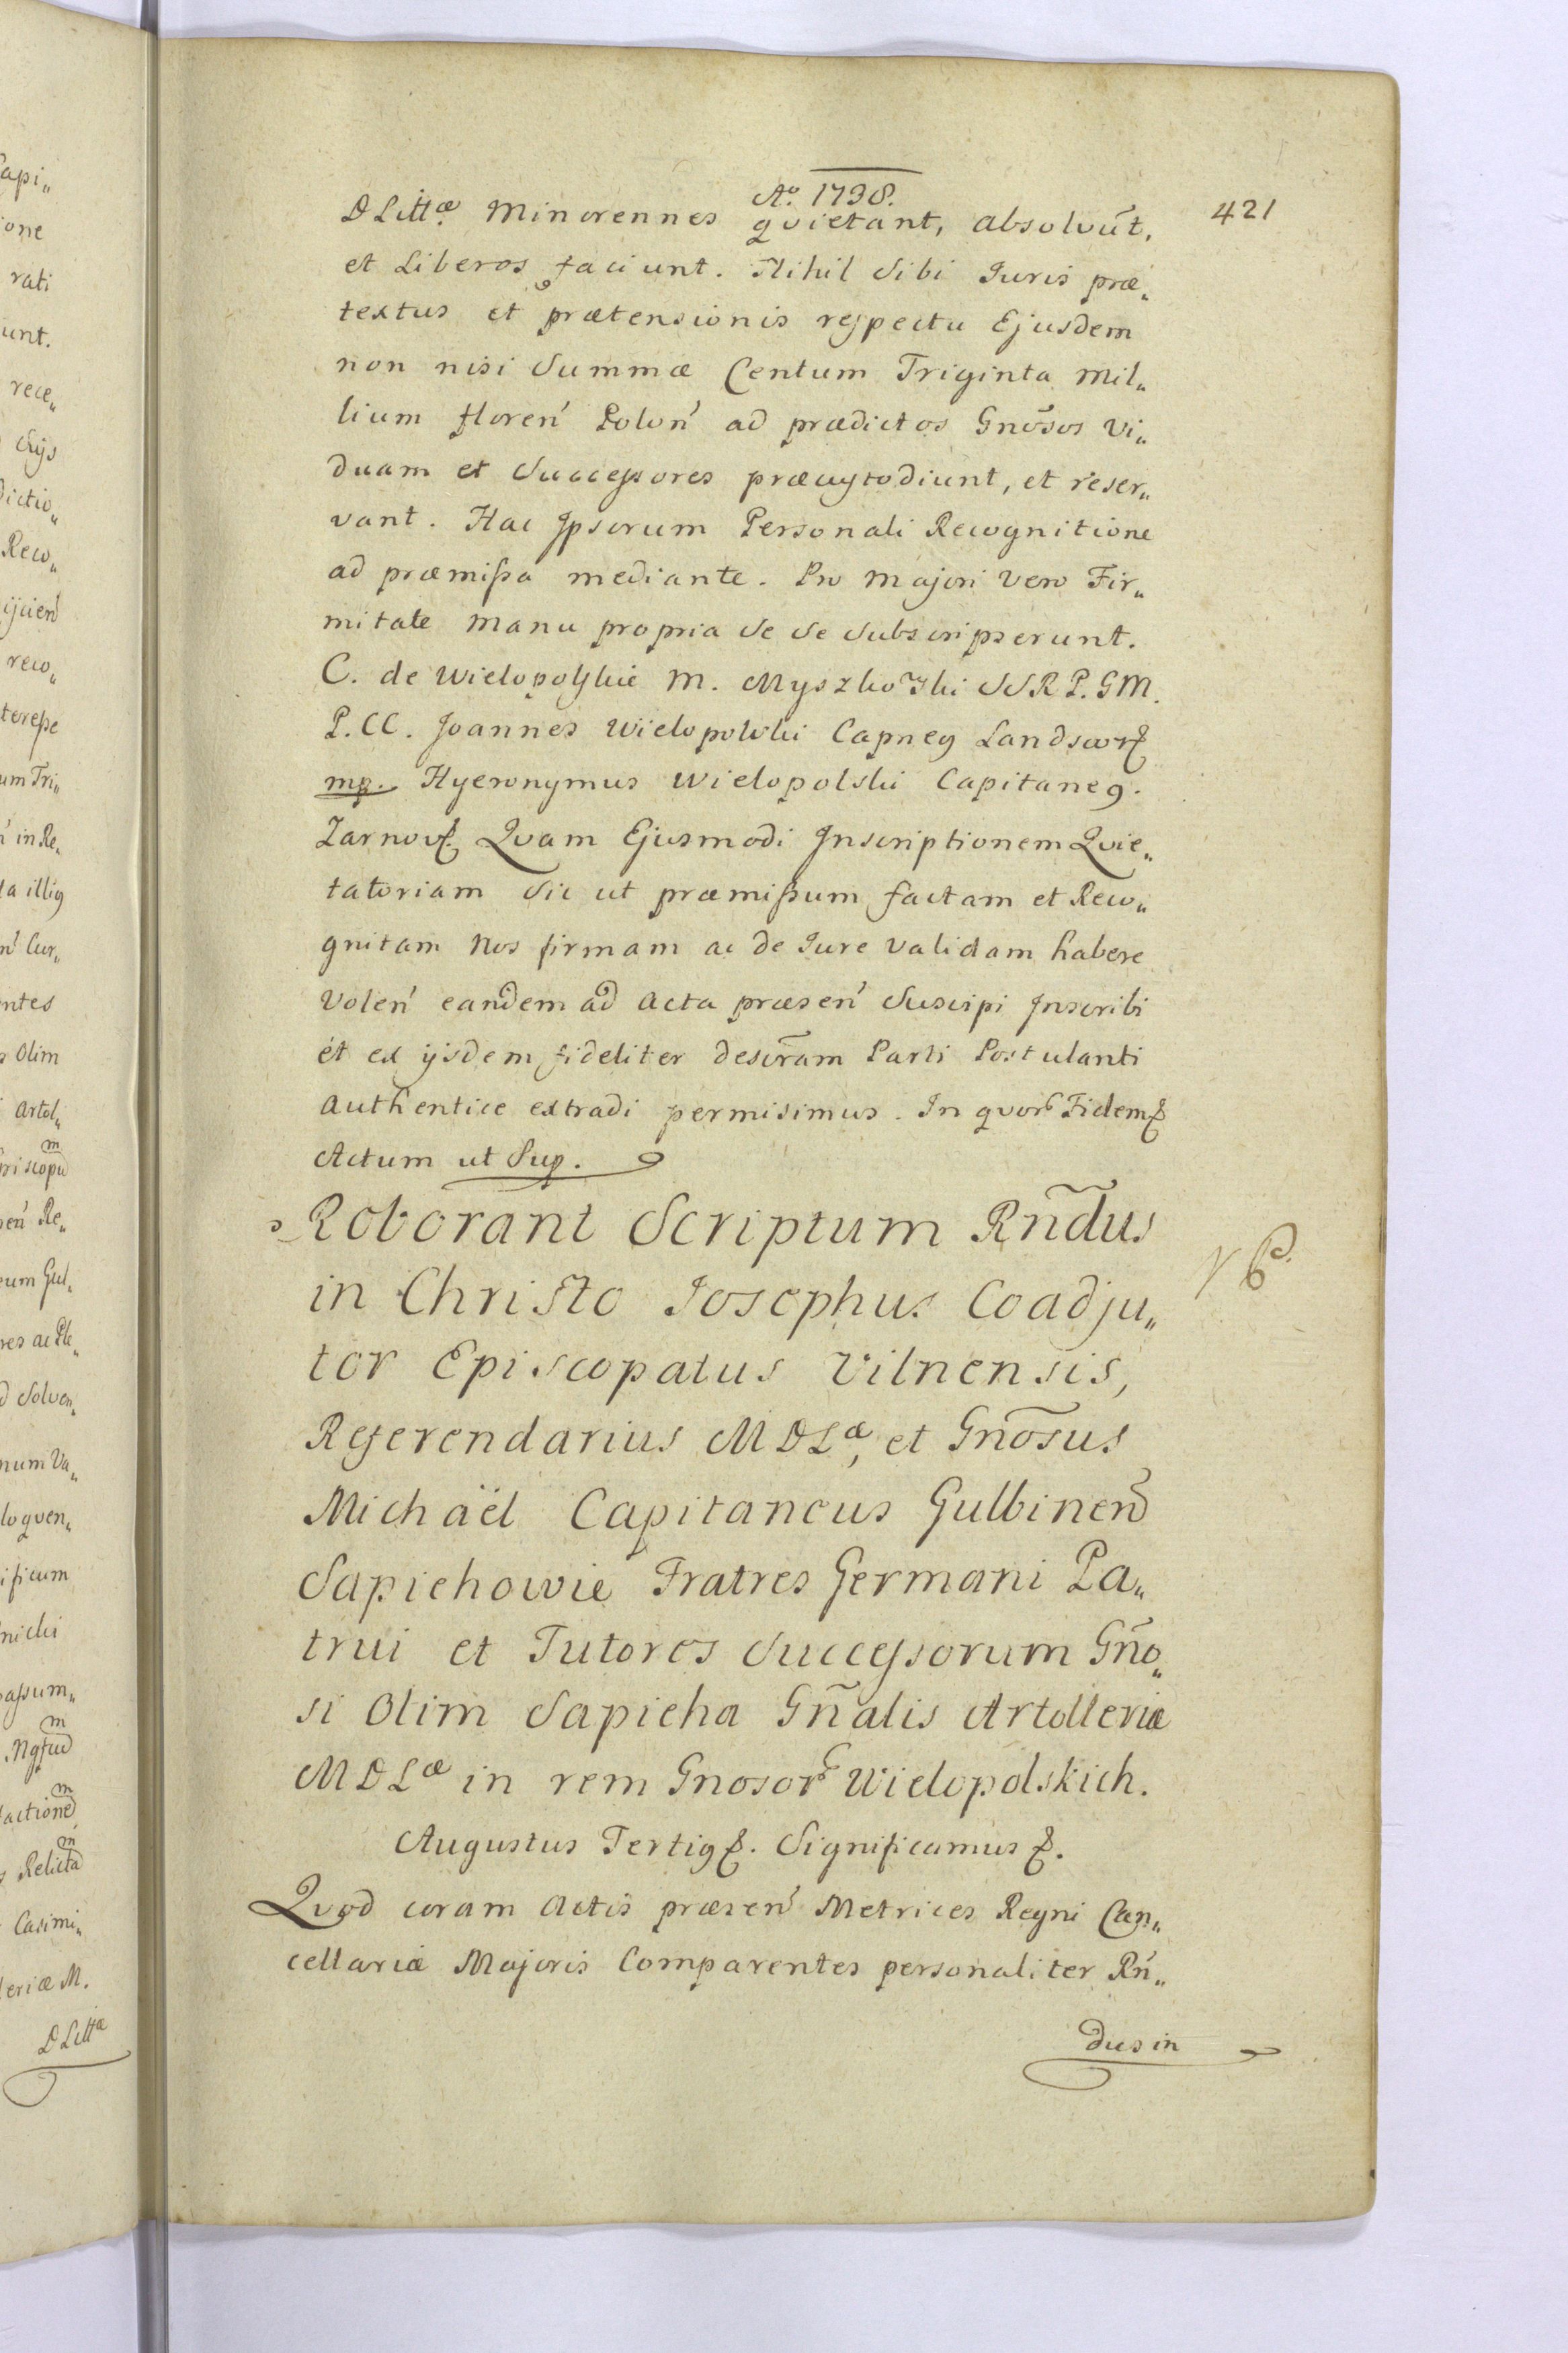 Ao. 1738.
421
D Littæ Minorennes quietant, absolvũt,
et Liberos faciunt. Nihil Sibi Juris præ„
textus et prætensionis respectu Ejusdem
non nisi Summæ Centum Triginta Mil„
lium floreń Poloń ad prædictos Gnõsos Vi„
duam et Successores præcustodiunt, et reser„
vant. Hac Ipsorum Personali Recognitione
ad præmissa mediante. Pro Majori vero Fir„
mitate manu propria Se Se Subscripserunt.
C. de Wielopolskie M. Myszkowski SSRP. GM.
P.CC. Joannes Wielopolski Capneg Landscor
mp. Hyeronymus Wielopolski Capitaneg.
Zarnov Quam Ejusmodi Inscriptionem Quie„
tatoriam Sic ut præmissum factam et Reco„
gnitam Nos firmam ac de Jure Validam habere
Voleń eandem ad Acta præseń Suscipi Inscribi
et ex ijsdem fideliter descr̃am Parti Postulanti
Authentice extradi permisimus. In quor Fidem
Actum ut Sup.
Roborant Scriptum Rñdus
in Christo Josephus Coadju„
tor Episcopatus Vilnensis,
Referendarius MDLæ, et Gnõsus
Michaël Capitaneus Gulbineń
Sapiehowie Fratres Germani Pa„
trui et Tutores Successorum Gño„
si Olim Sapieha Gñalis Artolleriæ
MDLæ in rem Gnosor Wielopolskich.
Augustus Tertig. Significamus.
Quod coram Actis præseń Metrices Regni Can„
cellariæ Majoris Comparentes personaliter Rń„
dus in